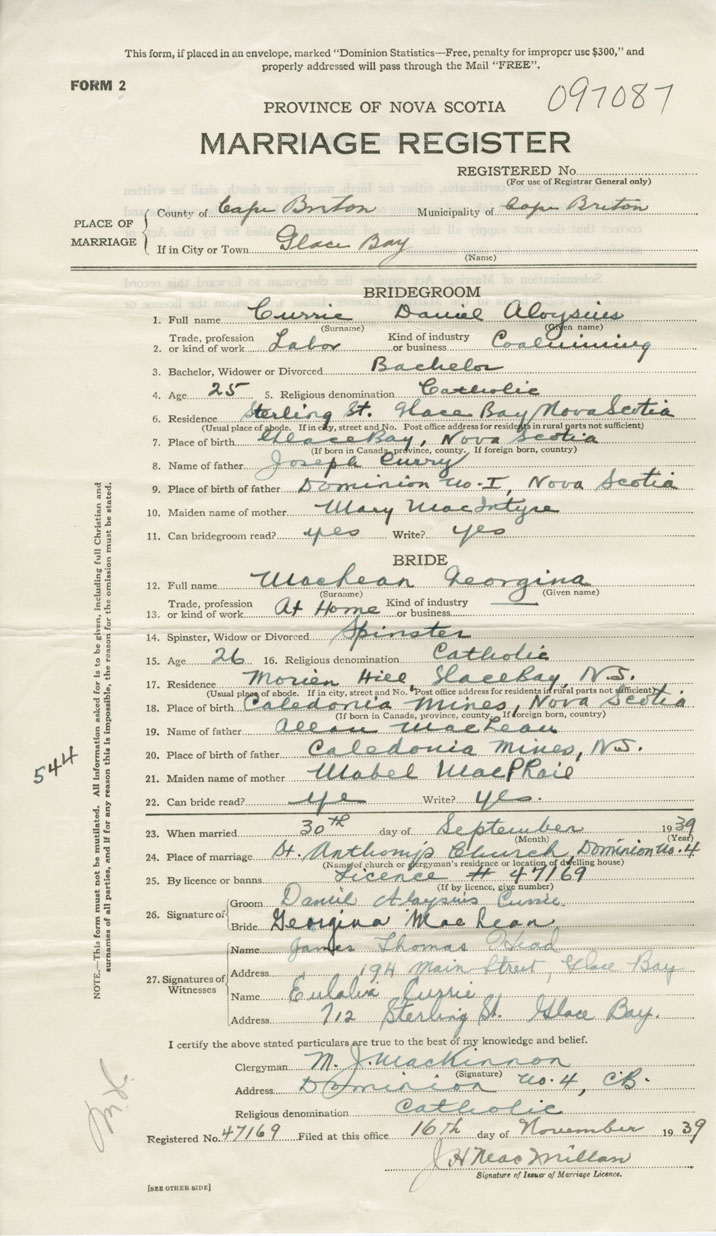 This form, if placed in an envelope, marked "Dominion Statistics—Free, penalty for improper use $300," and
properly addressed will pass through the Mail "FREE".
FORM 2
097087
PROVINCE OF NOVA SCOTIA
MARRIAGE REGISTER
REGISTERED No.
(For use of Registrar General only)
PLACE OF MARRIAGE
County of Cape Breton Municipality of Cape Breton
If in City or Town Glace Bay
(Name)
BRIDEGROOM
1. Full name Currie Daniel Aloysius
(Surname) (Given name)
2. Trade, profession or kind of work Labor Kind of industry or business Coalmining
3. Bachelor, Widower or Divorced Bachelor
4. Age 25 5. Religious denomination Catholic
6. Residence Sterling St. Glace Bay, Nova Scotia
(Usual place of abode. If in city, street and No. Post office address for residents in rural parts not sufficient)
7. Place of birth Glace Bay, Nova Scotia
(If born in Canada, province, county. If foreign born, country)
8. Name of father Joseph Curry
9. Place of birth of father Dominion No. I, Nova Scotia
10. Maiden name of mother Mary MacIntyre
11. Can bridegroom read? yes Write? yes
BRIDE
12. Full name MacLean Georgina
(Surname) (Given name)
13. Trade, profession or kind of work At Home Kind of industry or business —
14. Spinster, Widow or Divorced Spinster
15. Age 26 16. Religious denomination Catholic
17. Residence Morien Hill, Glace Bay, N.S.
(Usual place of abode. If in city, street and No. Post office address for residents in rural parts not sufficient)
18. Place of birth Caledonia Mines, Nova Scotia
(If born in Canada, province, county. If foreign born, country)
19. Name of father Allan MacLean
20. Place of birth of father Caledonia Mines, N.S.
21. Maiden name of mother Mabel MacPhail
22. Can bride read? ye Write? yes.
23. When married 30th day of September 1939
(Month) (Year)
24. Place of marriage St. Anthony's Church, Dominion No. 4
(Name of church or clergyman's residence or location of dwelling house)
25. By licence or banns Licence # 47169
(If by licence, give number)
26. Signature of
Groom Daniel Aloysius Currie
Bride Georgina MacLean
27. Signatures of Witnesses
Name James Thomas Head
Address 194 Main Street, Glace Bay
Name Eulalia Currie
Address 712 Sterling St. Glace Bay.
I certify the above stated particulars are true to the best of my knowledge and belief.
Clergyman M. J. MacKinnon
(Signature)
Address Dominion No. 4, C.B.
Religious denomination Catholic
Registered No. 47169 Filed at this office 16th day of November 1939
J H MacMillan
Signature of Issuer of Marriage Licence.
[SEE OTHER SIDE]
NOTE.—This form must not be mutilated. All information asked for is to be given, including full Christian and
surnames of all parties, and if for any reason this is impossible, the reason for the omission must be stated.
544